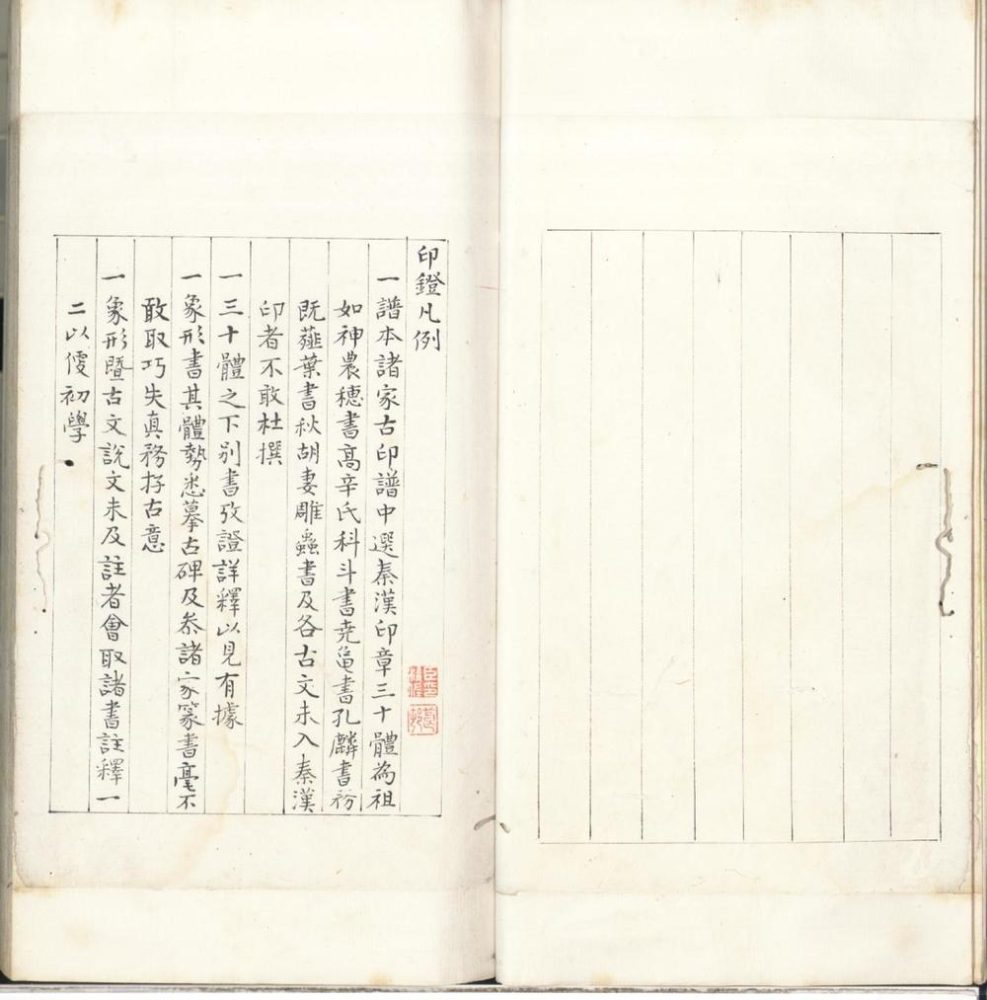 印鐙凡例
一譜本諸家古印譜中選秦漢印章三十體為祖
如神農穗書高辛氏科斗書堯龜書孔麟書
既薤葉書秋胡妻雕蟲書及各古文未入秦漢
印者不敢杜撰
一三十體之下別書攷證詳釋以見有據
一象形書其體勢悉摹古碑及叅諸家篆書毫不
敢取巧失真務存古意
一象形暨古文說文未及註者會取諸書註釋一
二以便初學